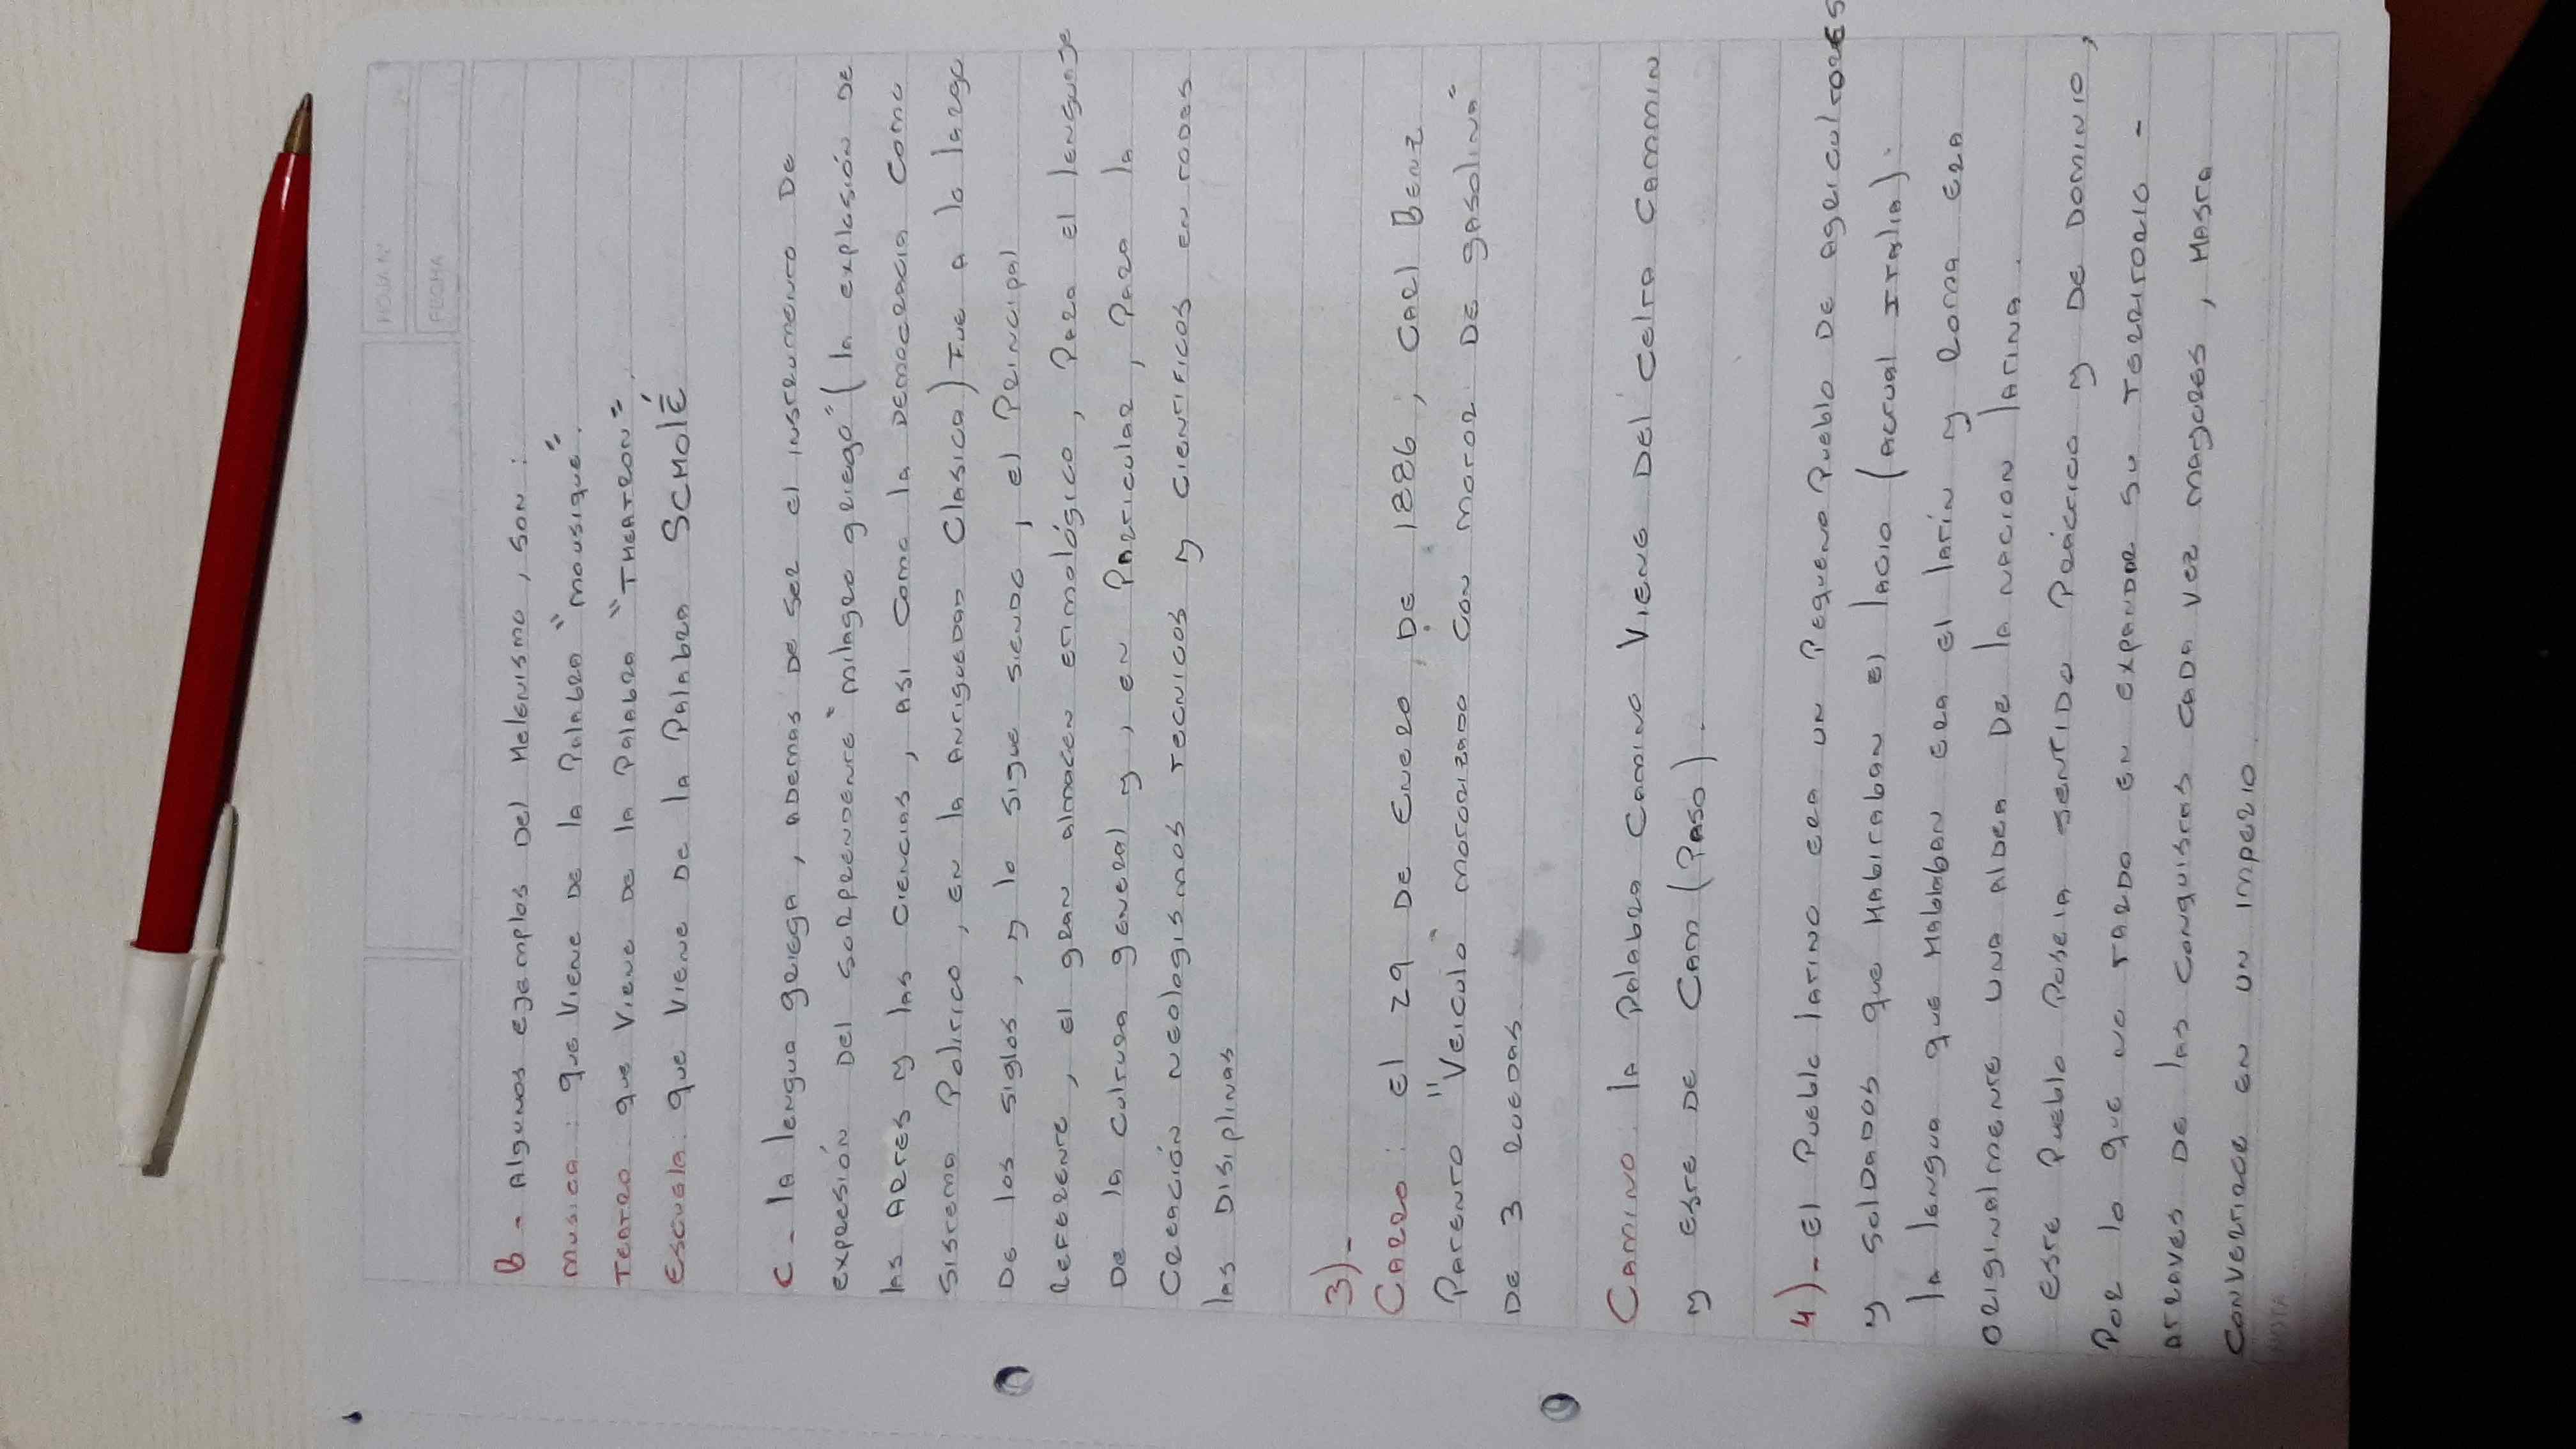 HOJA N°
FECHA
B - Algunos ejemplos del Helenismo, son:
Musica: que viene de la palabra "mousique".
Teatro que viene de la palabra "THEATRON".
Escuela: que viene de la palabra SCHOLÉ
C - la lengua griega, ademas de ser el instrumento de
expresión del sorprendente "milagro griego" (la explosión de
las artes y las ciencias, asi como la democracia como
sistema politico, en la antiguedad clasica) fue a lo largo
de los siglos, y lo sigue siendo, el principal
referente, el gran almacen etimológico, para el lenguaje
de la cultura general y, en particular, para la
creación neologismos tecnicos y cientificos en todas
las disiplinas
3)-
Carro: el 29 de Enero, de 1886, Carl Benz
patento "Veiculo" motorizado con motor de gasolina"
de 3 ruedas
Camino. la palabra camino viene del celta cammin
y este de cam (paso).
4)- El pueblo latino era un pequeno pueblo de agricultores
y soldados que habitaban el lacio (actual Italia).
la lengua que hablaban era el latín y roma era
originalmente una aldea de la nacion latina.
este pueblo poseia sentido práctico y de dominio,
por lo que no tardo en expandir su territorio -
atraves de las conquistas cada vez mayores, hasta
convertirse en un imperio.